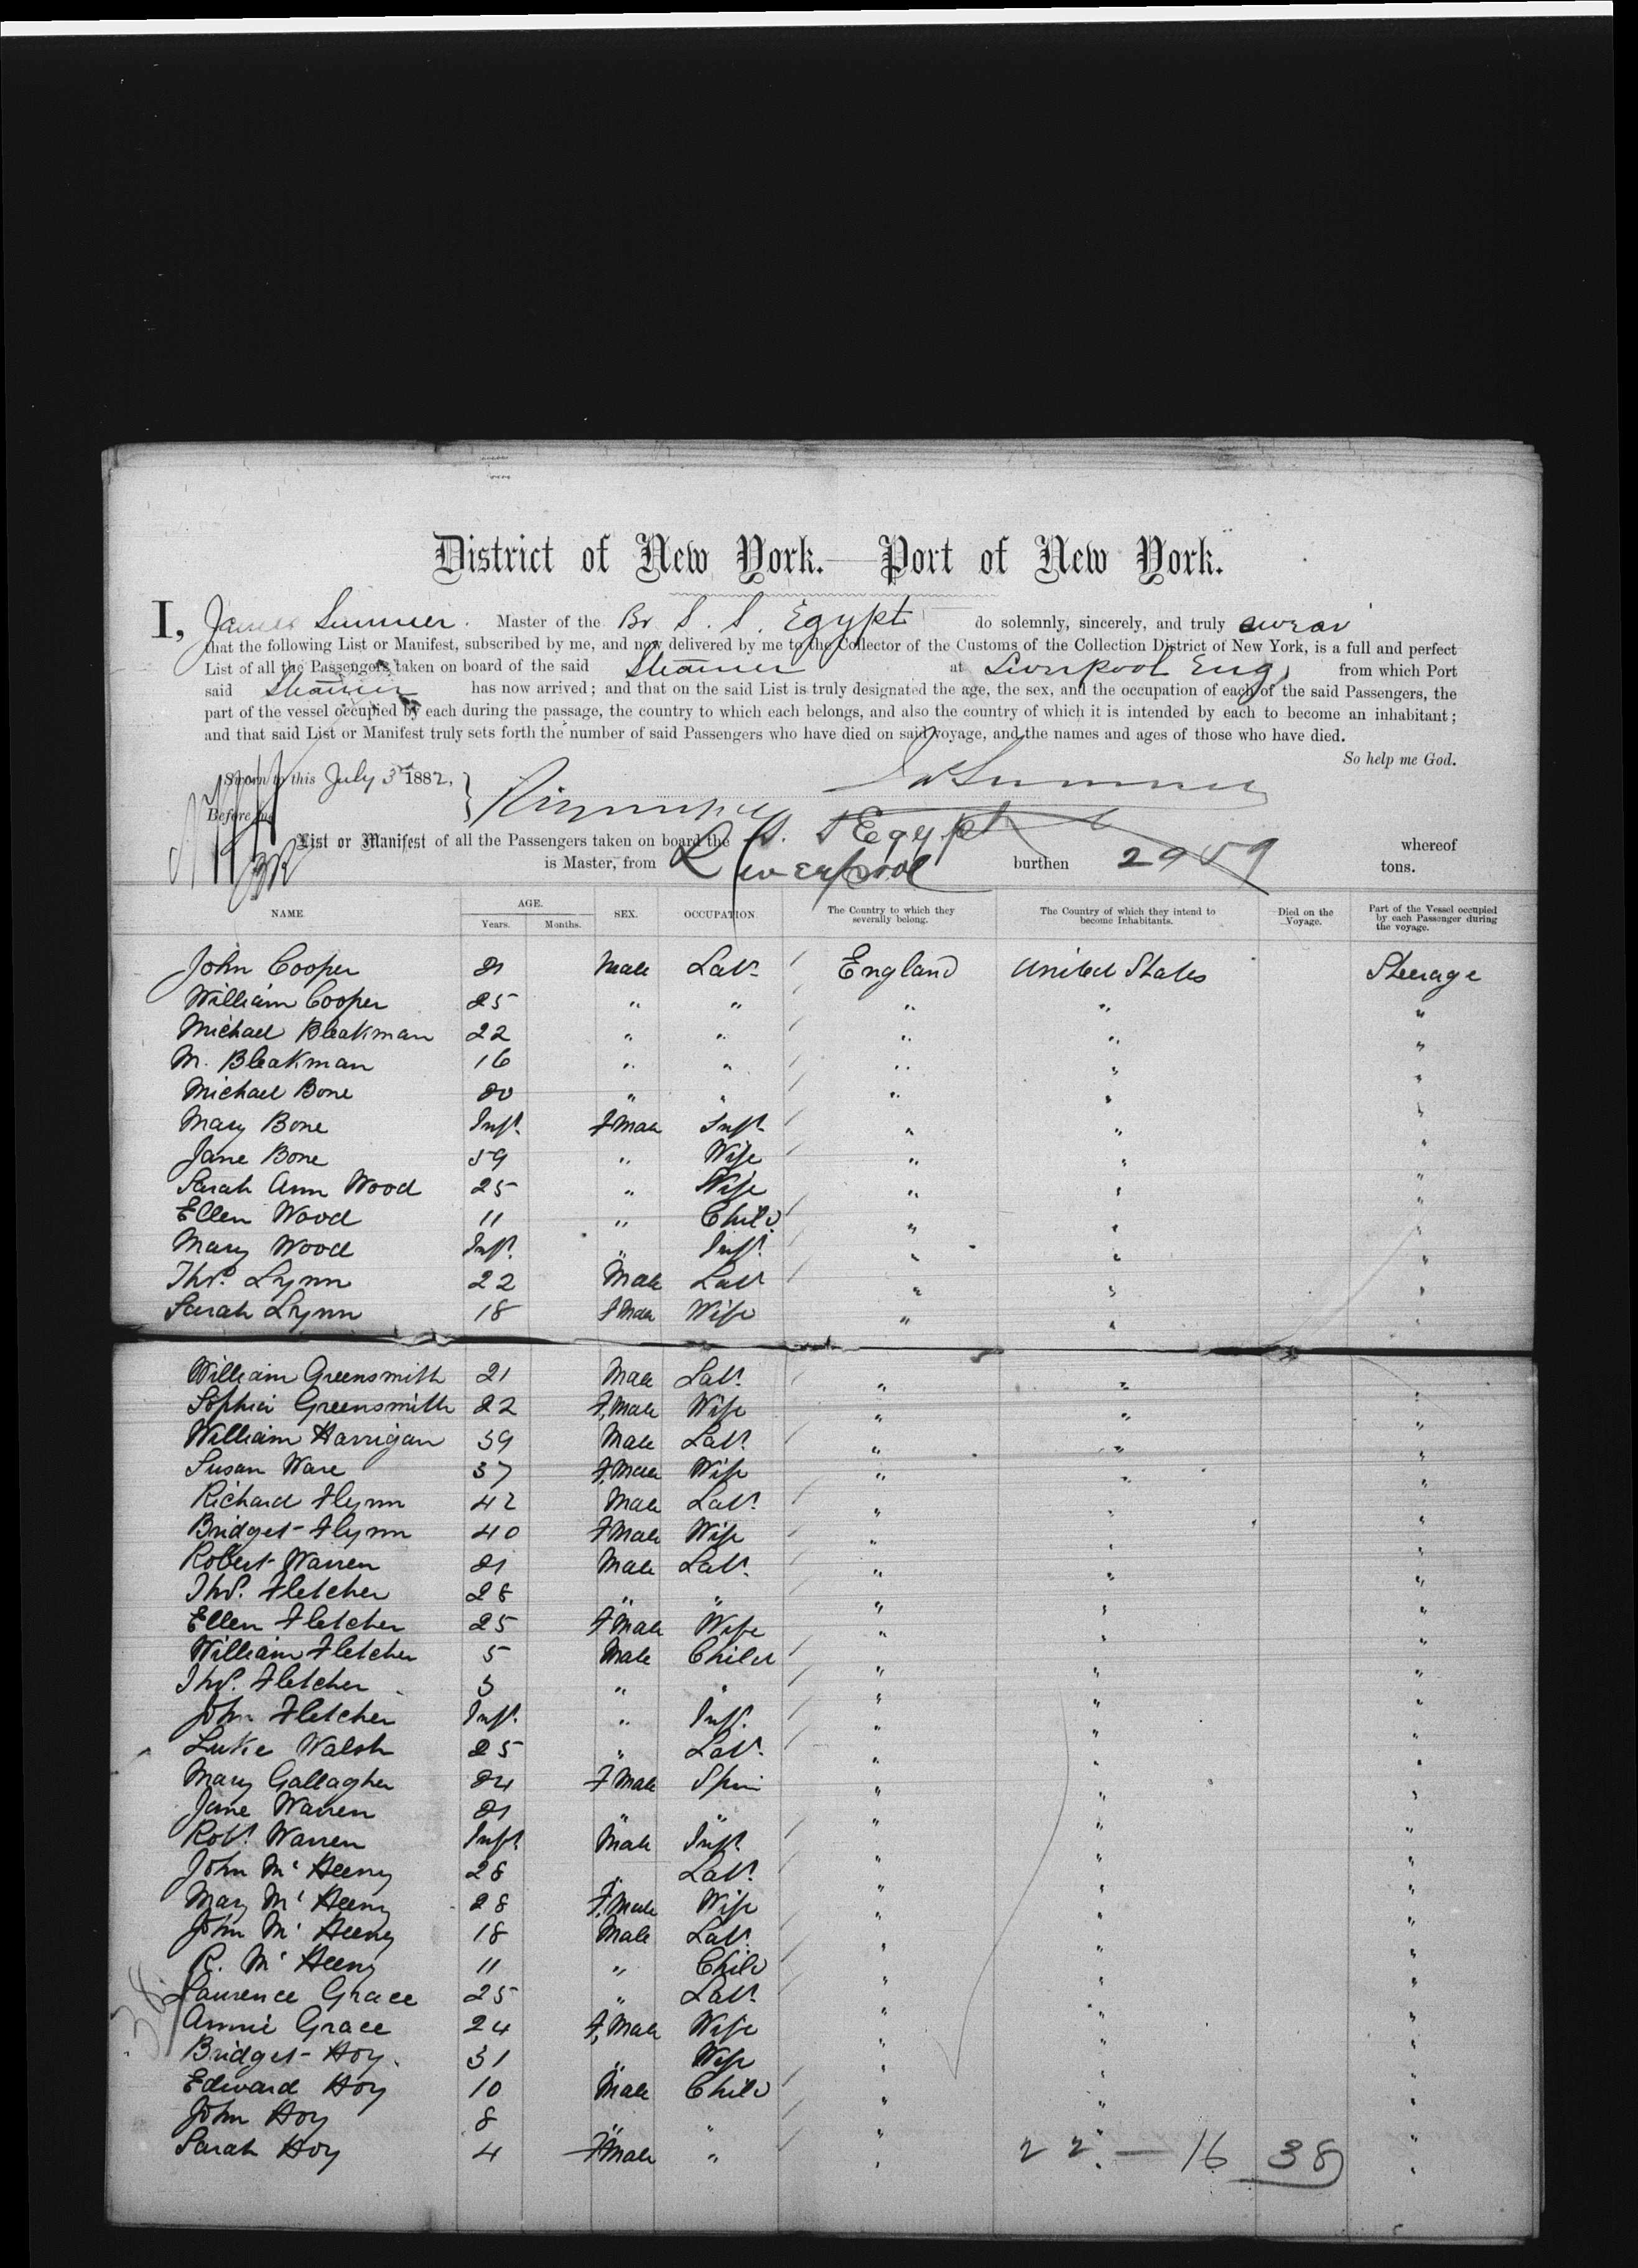 District of New York. Port of New York.
I, James Sumner. Master of the Br S. S. Egypt do solemnly, sincerely, and truly swear
that the following List or Manifest, subscribed by me, and now delivered by me to the Collector of the Customs of the Collection District of New York, is a full and perfect
List of all the Passengers taken on board of the said Steamer at Liverpool Eng, from which Port
said Steamer has now arrived; and that on the said List is truly designated the age, the sex, and the occupation of each of the said Passengers, the
part of the vessel occupied by each during the passage, the country to which each belongs, and also the country of which it is intended by each to become an inhabitant;
and that said List or Manifest truly sets forth the number of said Passengers who have died on said voyage, and the names and ages of those who have died.
So help me God.
Sworn to this July 3rd 1882, Sumner
Before me
List or Manifest of all the Passengers taken on board the S. S Egypt whereof
is Master, from Liverpool burthen 2959 tons.
NAME. AGE. Years. Months. SEX. OCCUPATION. The Country to which they severally belong. The Country of which they intend to become Inhabitants. Died on the Voyage. Part of the Vessel occupied by each Passenger during the voyage.
John Cooper 21 Male Labr England United States Steerage
William Cooper 25 " " " " "
Michael Bleakman 22 " " " " "
M. Bleakman 16 " " " " "
Michael Bone 20 " " " " "
Mary Bone Inft. FMale Inft. " " "
Jane Bone 59 " Wife " " "
Sarah Ann Wood 25 " Wife " " "
Ellen Wood 11 " Child " " "
Mary Wood Inft. " Inft. " " "
Thos. Lynn 22 Male Labr " " "
Sarah Lynn 18 FMale Wife " " "
William Greensmith 21 Male Labr. " " "
Sophia Greensmith 22 F,Male Wife " " "
William Harrigan 39 Male Labr. " " "
Susan Ware 37 F,Male Wife " " "
Richard Flynn 42 Male Labr. " " "
Bridget Flynn 40 FMale Wife " " "
Robert Warren 21 Male Labr. " " "
Thos. Fletcher 28 " " " " "
Ellen Fletcher 25 FMale Wife " " "
William Fletcher 5 Male Child " " "
Thos. Fletcher 3 " " " " "
John Fletcher Inft. " Inft. " " "
Luke Walsh 25 " Labr. " " "
Mary Gallagher 24 FMale Spin " " "
Jane Warren 21 " " " " "
Robt. Warren Inft Male Inft. " " "
John Mc Heeny 28 " Labr. " " "
Mary Mc Heeny 28 F,Male Wife " " "
John Mc Heeny 18 Male Labr. " " "
R. Mc Heeny 11 " Child " " "
Laurence Grace 25 " Labr. " " "
Annie Grace 24 F,Male Wife " " "
Bridget Hoy. 31 " Wife " " "
Edward Hoy 10 Male Child " " "
John Hoy 8 " " " " "
Sarah Hoy 4 FMale " " " "
22 — 16 38
38